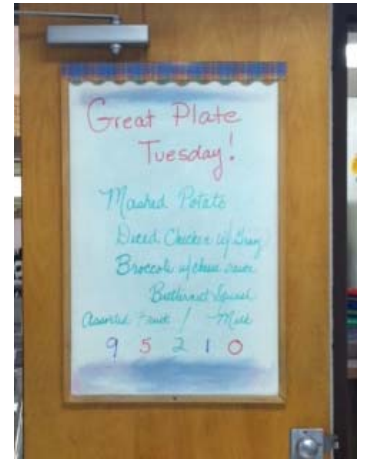 Great Plate
Tuesday!
Mashed Potato
Diced Chicken w/ Gravy
Broccoli w/cheese sauce
Butternut Squash
Assorted Fruit / Milk
9 5 2 1 0